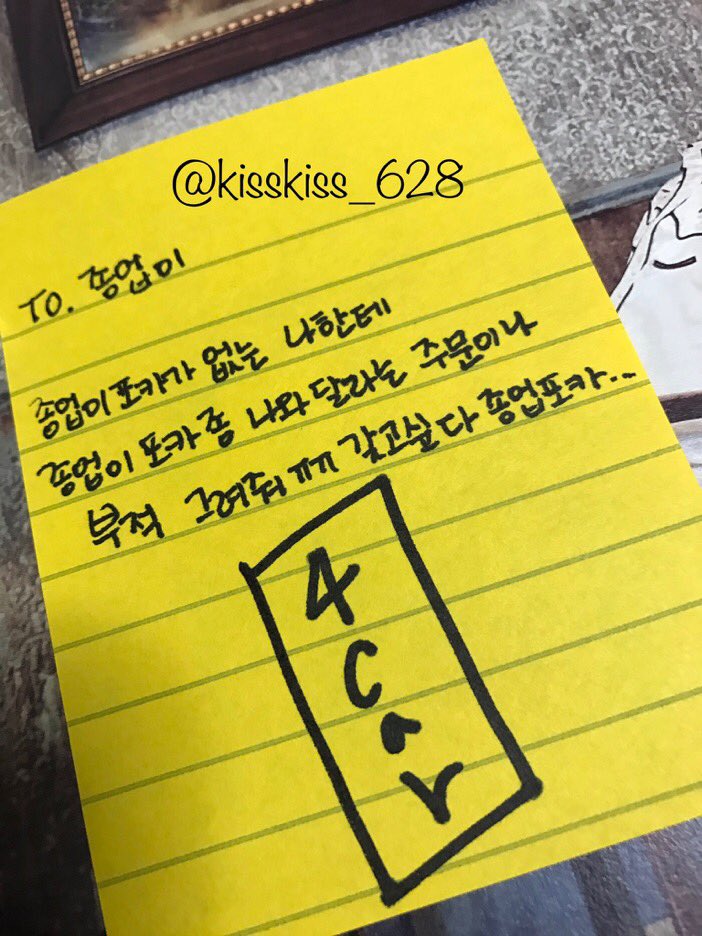 @kisskiss_628
TO. 종업이
종업이 포카가 없는 나한테
종업이 포카 좀 나와달라는 주문이나
부적 그려줘 ㅠㅠ 갖고싶다 종업포카...
4
C
a
r